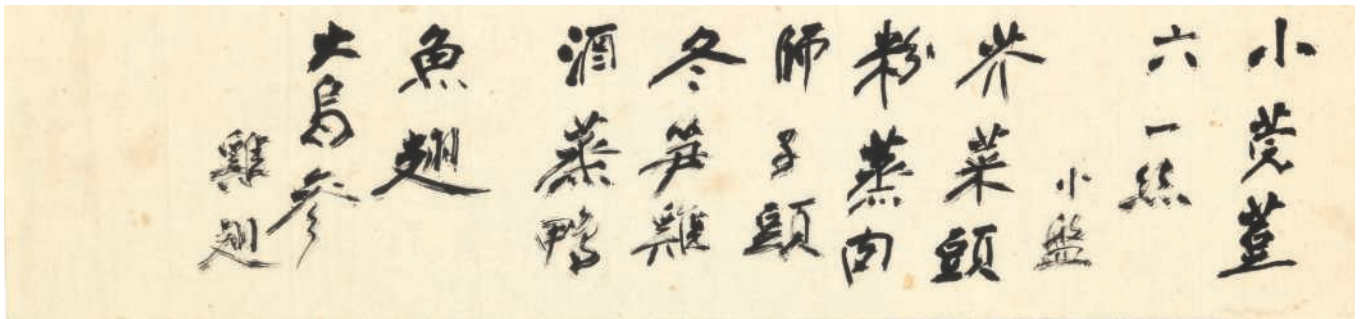 小莞荳
六一絲
小盤
芥菜頭
粉蒸肉
師子頭
冬笋雞
酒蒸鴨
魚翅
大烏參
雞翅